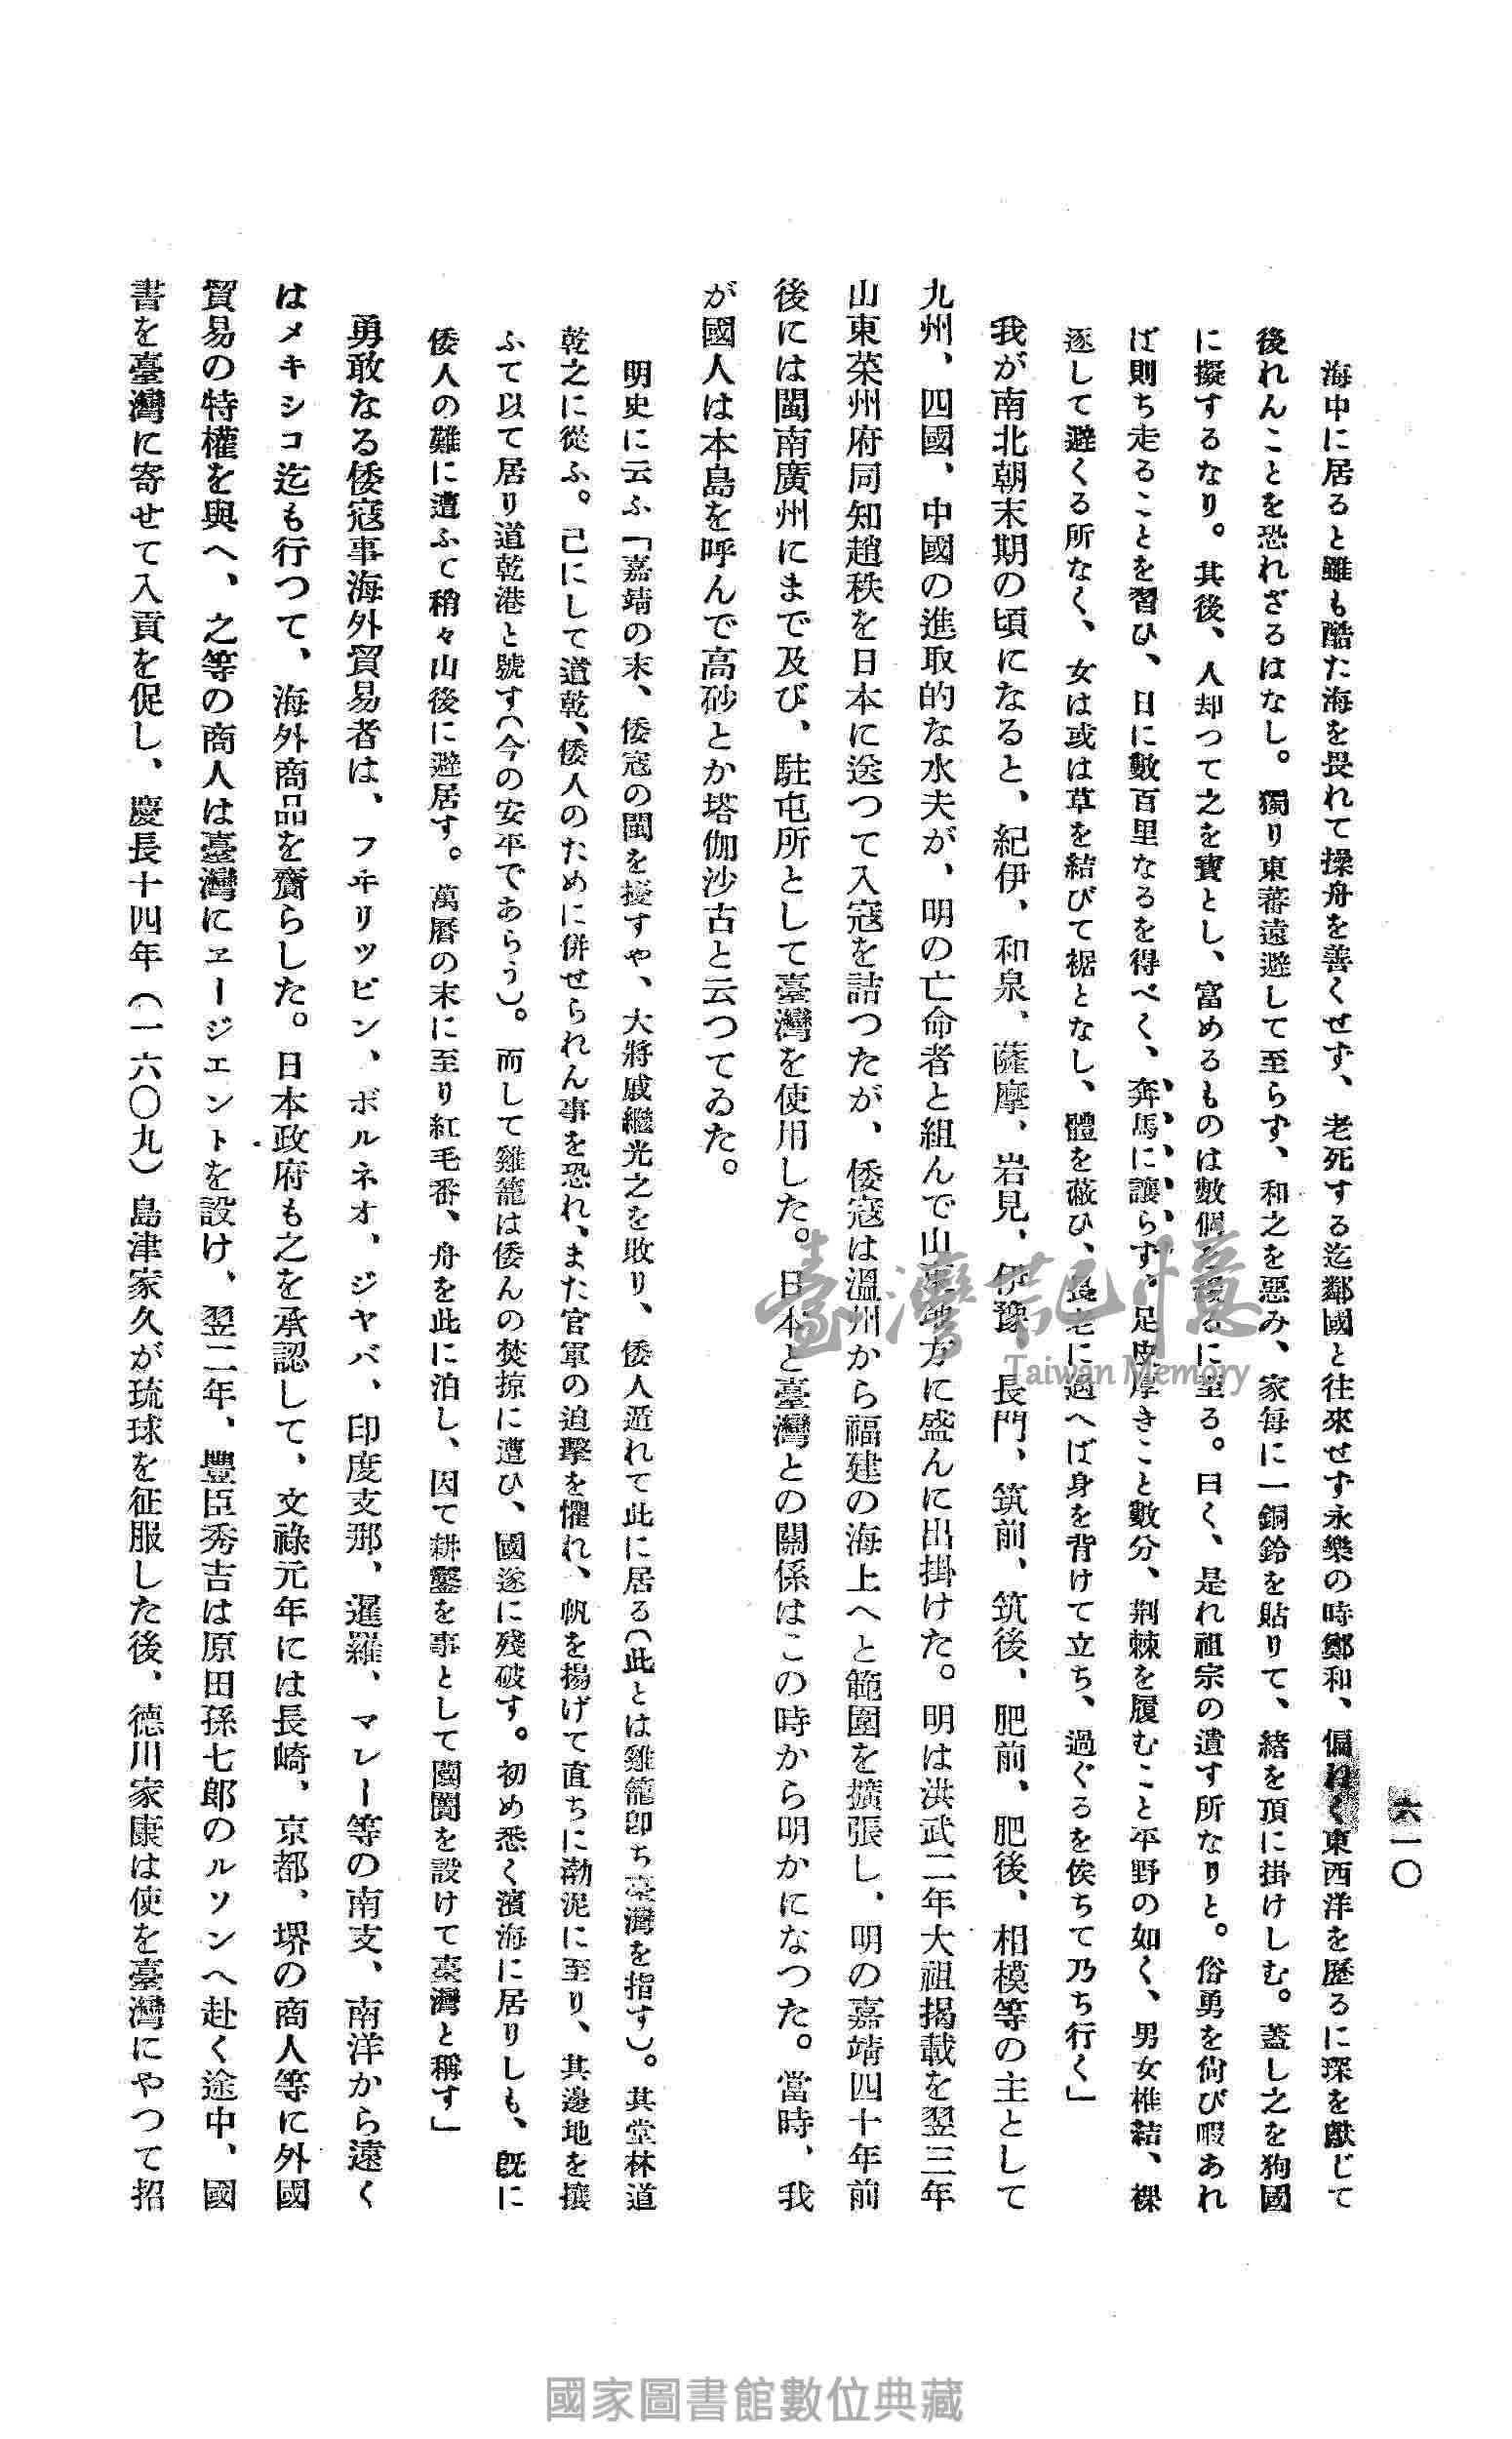 六一〇
海中に居ると雖も酷た海を畏れて操舟を善くせず、老死する迄鄰國と往來せず永樂の時鄭和、偏ねく東西洋を歷るに琛を獻じて
後れんことを恐れざるはなし。獨り東蕃遠避して至らず、和之を惡み、家每に一銅鈴を貼りて、緒を頂に掛けしむ。蓋し之を狗國
に擬するなり。其後、人却つて之を寶とし、富めるものは數個を に至る。曰く、是れ祖宗の遺す所なりと。俗勇を尙び暇あれ
ば則ち走ることを習ひ、日に數百里なるを得べく、奔馬に讓らず、足皮厚きこと數分、荆棘を履むこと平野の如く、男女椎結、裸
逐して避くる所なく、女は或は草を結びて裾となし、體を蔽ひ、長老に遇へば身を背けて立ち、過ぐるを俟ちて乃ち行く」
我が南北朝末期の頃になると、紀伊、和泉、薩摩、岩見、伊豫、長門、筑前、筑後、肥前、肥後、相模等の主として
九州、四國、中國の進取的な水夫が、明の亡命者と組んで山東地方に盛んに出掛けた。明は洪武二年大祖揭載を翌三年
山東萊州府同知趙秩を日本に送つて入寇を詰つたが、倭寇は溫州から福建の海上へと範圍を擴張し、明の嘉靖四十年前
後には閩南廣州にまで及び、駐屯所として臺灣を使用した。日本と臺灣との關係はこの時から明かになつた。當時、我
が國人は本島を呼んで高砂とか塔伽沙古と云つてゐた。
明史に云ふ「嘉靖の末、倭寇の閩を擾すや、大將戚繼光之を敗り、倭人遁れて此に居る(此とは雞籠卽ち臺灣を指す)。其堂林道
乾之に從ふ。已にして道乾、倭人のために併せられん事を恐れ、また官軍の追擊を懼れ、帆を揚げて直ちに渤泥に至り、其邊地を攘
ふて以て居り道乾港と號す(今の安平であらう)。而して雞籠は倭んの焚掠に遭ひ、國遂に殘破す。初め悉く濱海に居りしも、旣に
倭人の難に遭ふて稍々山後に避居す。萬曆の末に至り紅毛番、舟を此に泊し、因て耕鑿を事として闤闠を設けて臺灣と稱す」
勇敢なる倭寇事海外貿易者は、フヰリッピン、ボルネオ、ジヤバ、印度支那、暹羅、マレー等の南支、南洋から遠く
はメキシコ迄も行つて、海外商品を齎らした。日本政府も之を承認して、文祿元年には長崎、京都、堺の商人等に外國
貿易の特權を與へ、之等の商人は臺灣にヱージエントを設け、翌二年、豐臣秀吉は原田孫七郎のルソンへ赴く途中、國
書を臺灣に寄せて入貢を促し、慶長十四年(一六〇九)島津家久が琉球を征服した後、德川家康は使を臺灣にやつて招
臺灣記憶
Taiwan Memory
國家圖書館數位典藏